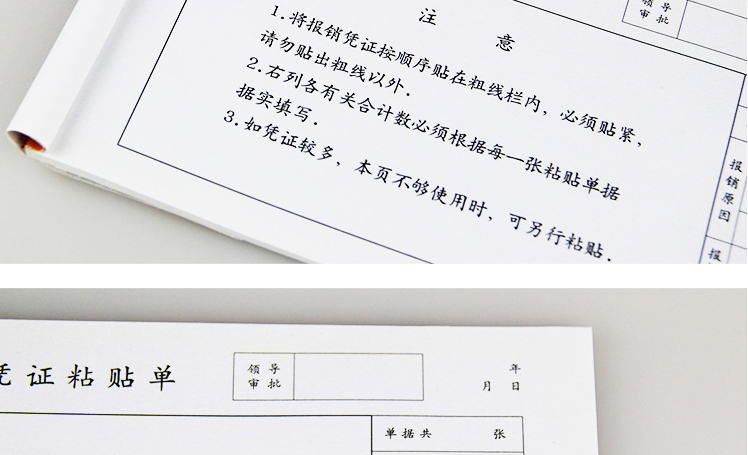 领导
审批
注意
1.将报销凭证按顺序贴在粗线栏内，必须贴紧，
请勿贴出粗线以外.
2.右列各有关合计数必须根据每一张粘贴单据
据实填写.
3.如凭证较多，本页不够使用时，可另行粘贴.
报销原因
报
凭证粘贴单
领导
审批
年
月 日
单据共 张